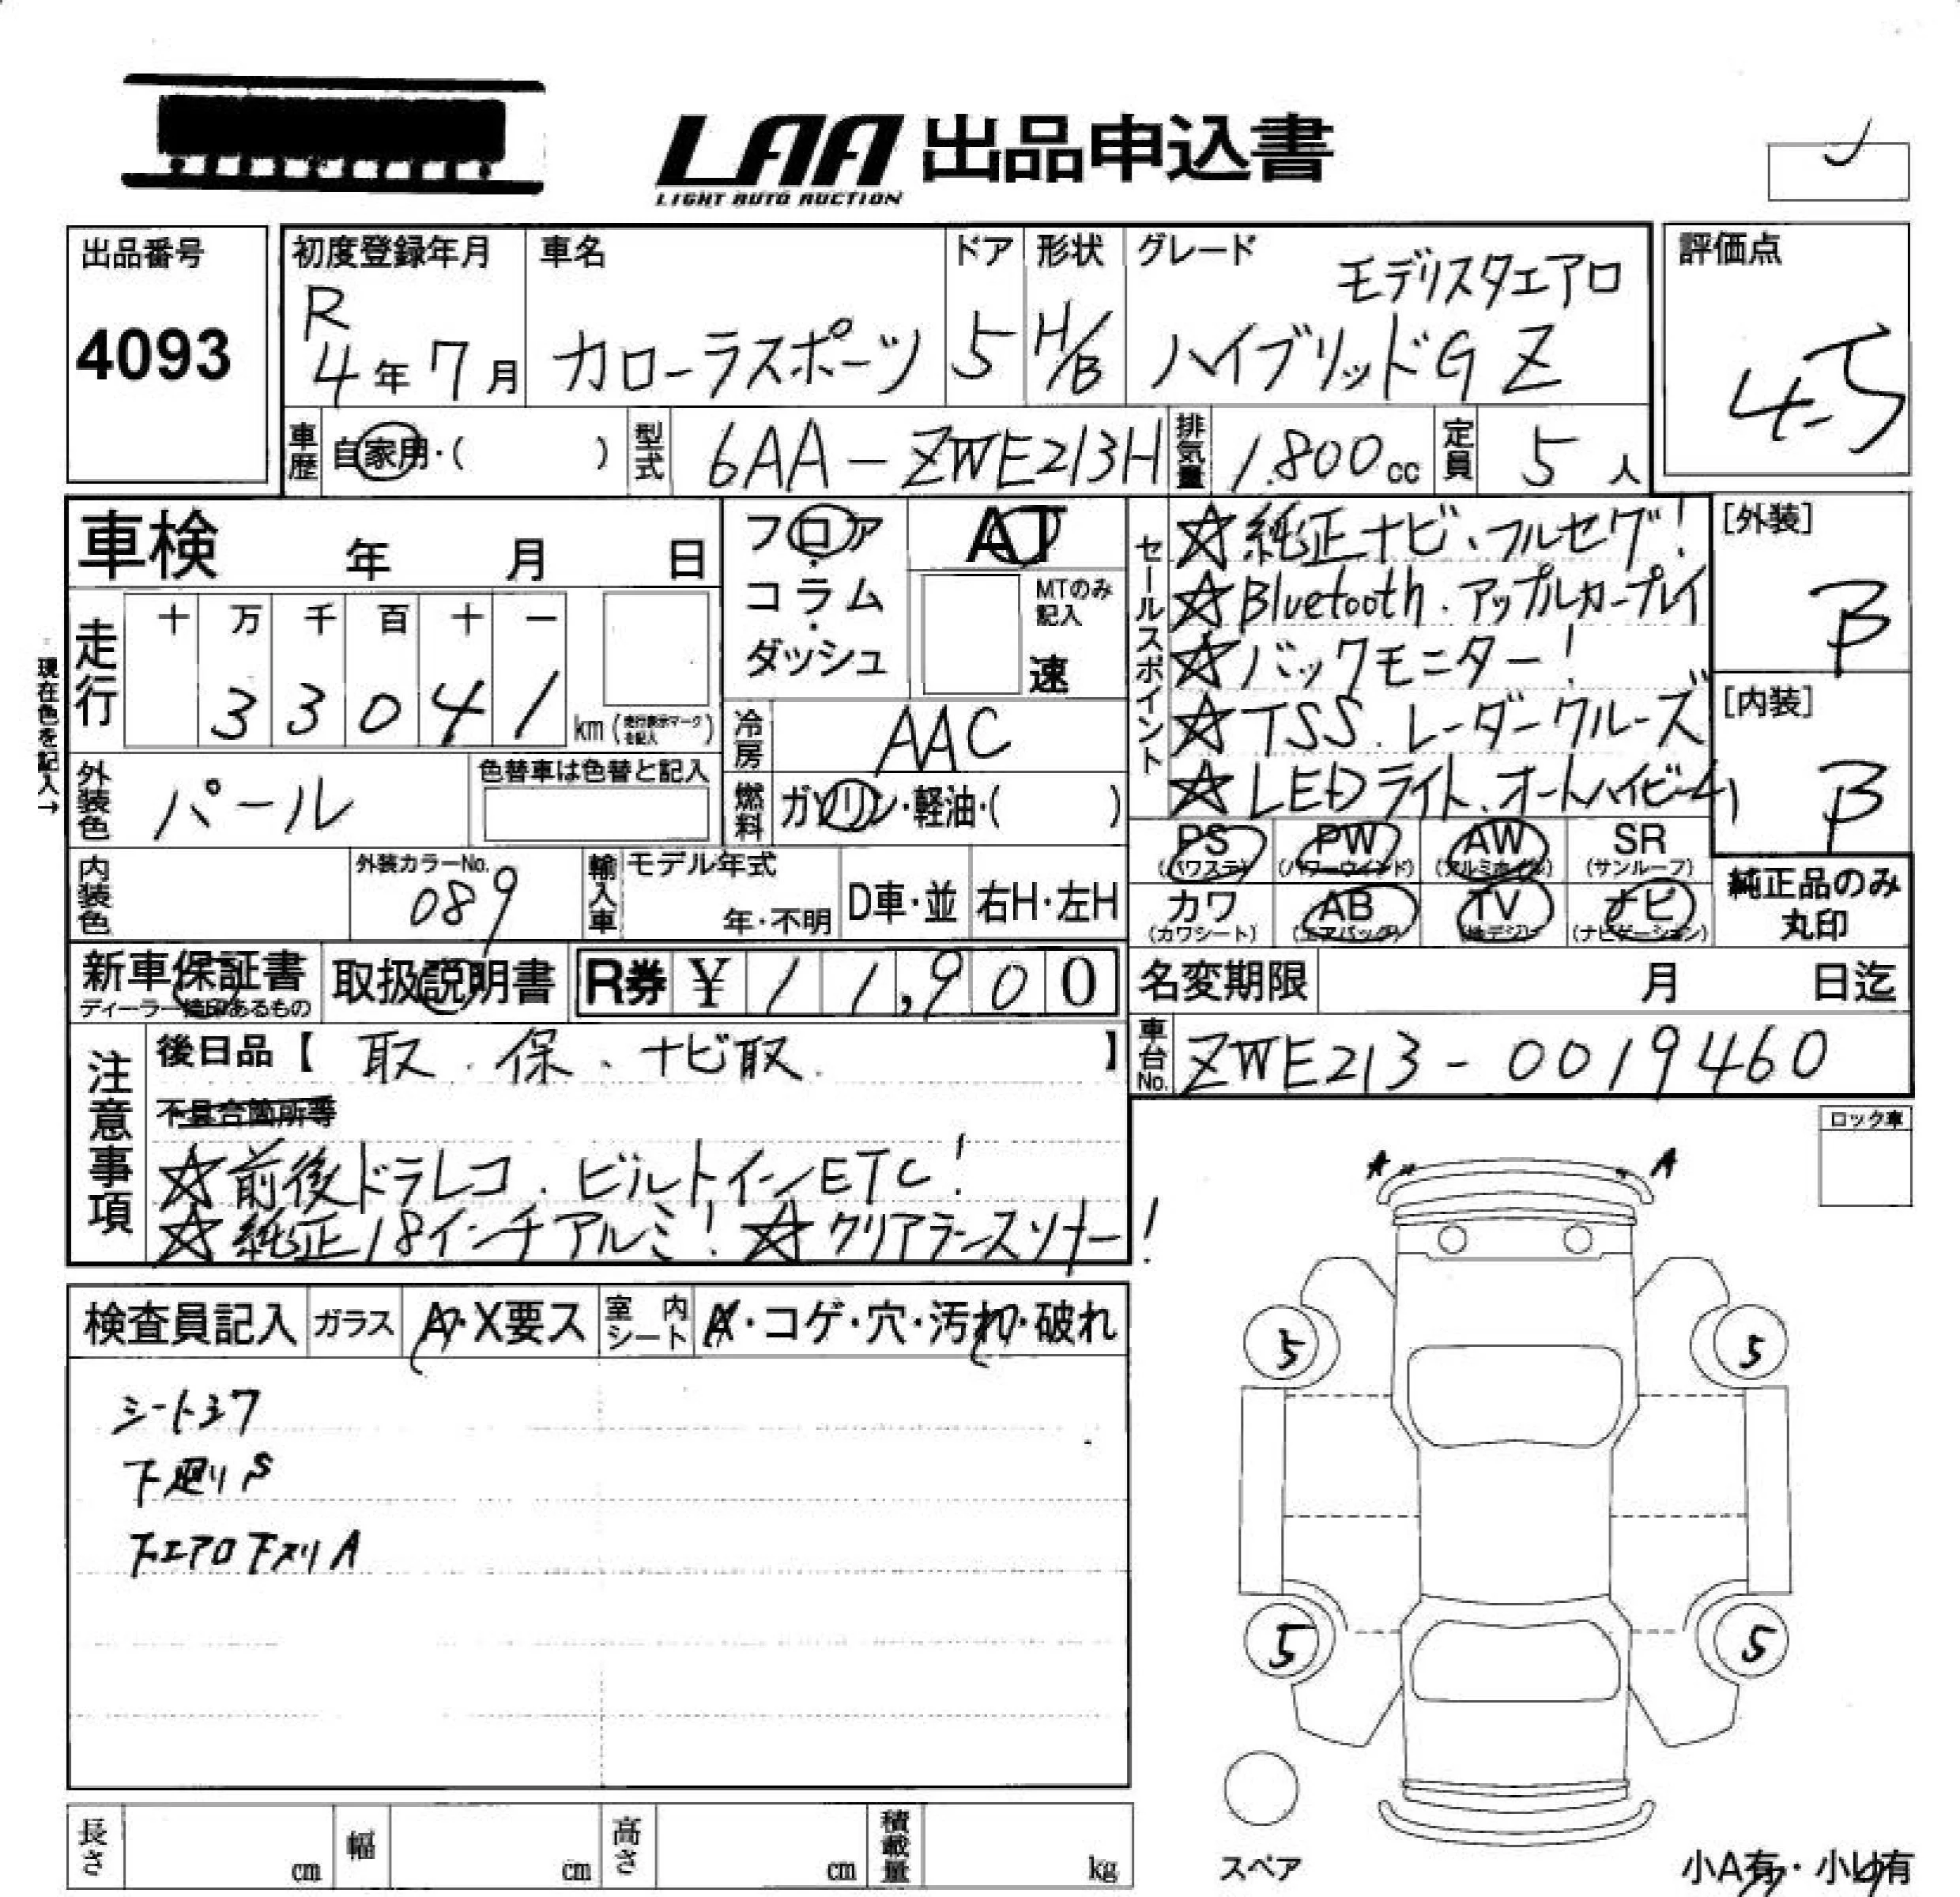 LAA 出品申込書
LIGHT AUTO AUCTION
出品番号
4093
初度登録年月
R
4年 7月
車名
カローラスポーツ
ドア
5
形状
H/B
グレード
モデリスタエアロ
ハイブリッドG Z
評価点
4.5
車歴
自家用・( )
型式
6AA-ZWE213H
排気量
1.800cc
定員
5人
車検 年 月 日
フロア
コラム
ダッシュ
AT
MTのみ記入
速
現在色を記入→
走行
十 万 千 百 十 一
3 3 0 4 1
km (走行表示マークを記入)
冷房
AAC
外装色
パール
色替車は色替と記入
燃料
ガソリン・軽油・( )
内装色
外装カラーNo.
089
輸入車
モデル年式
年・不明
D車・並
右H・左H
新車保証書
取扱説明書
R券 ¥ 11,900
セールスポイント
☆純正ナビ、フルセグ!
☆Bluetooth.アップルカープレイ
☆バックモニター!
☆TSS.レーダークルーズ
☆LEDライト、オートハイビーム
[外装]
B
[内装]
B
PS
(パワステ)
PW
(パワーウインド)
AW
(アルミホイル)
SR
(サンルーフ)
カワ
(カワシート)
AB
(エアバック)
TV
(地デジ)
ナビ
(ナビゲーション)
純正品のみ
丸印
名変期限 月 日迄
車台No.
ZWE213-0019460
注意事項
後日品【 取.保、ナビ取. 】
不具合箇所等
☆前後ドラレコ.ビルトインETC!
☆純正18インチアルミ! ☆クリアランスソナー!
ロック車
A A
検査員記入
ガラス
A・X要ス
室内シート
・コゲ・穴・汚れ・破れ
下廻りS
下エアロ下スリA
5 5
5 5
スペア
長さ cm
幅 cm
高さ cm
積載量 kg
小A有・小U有